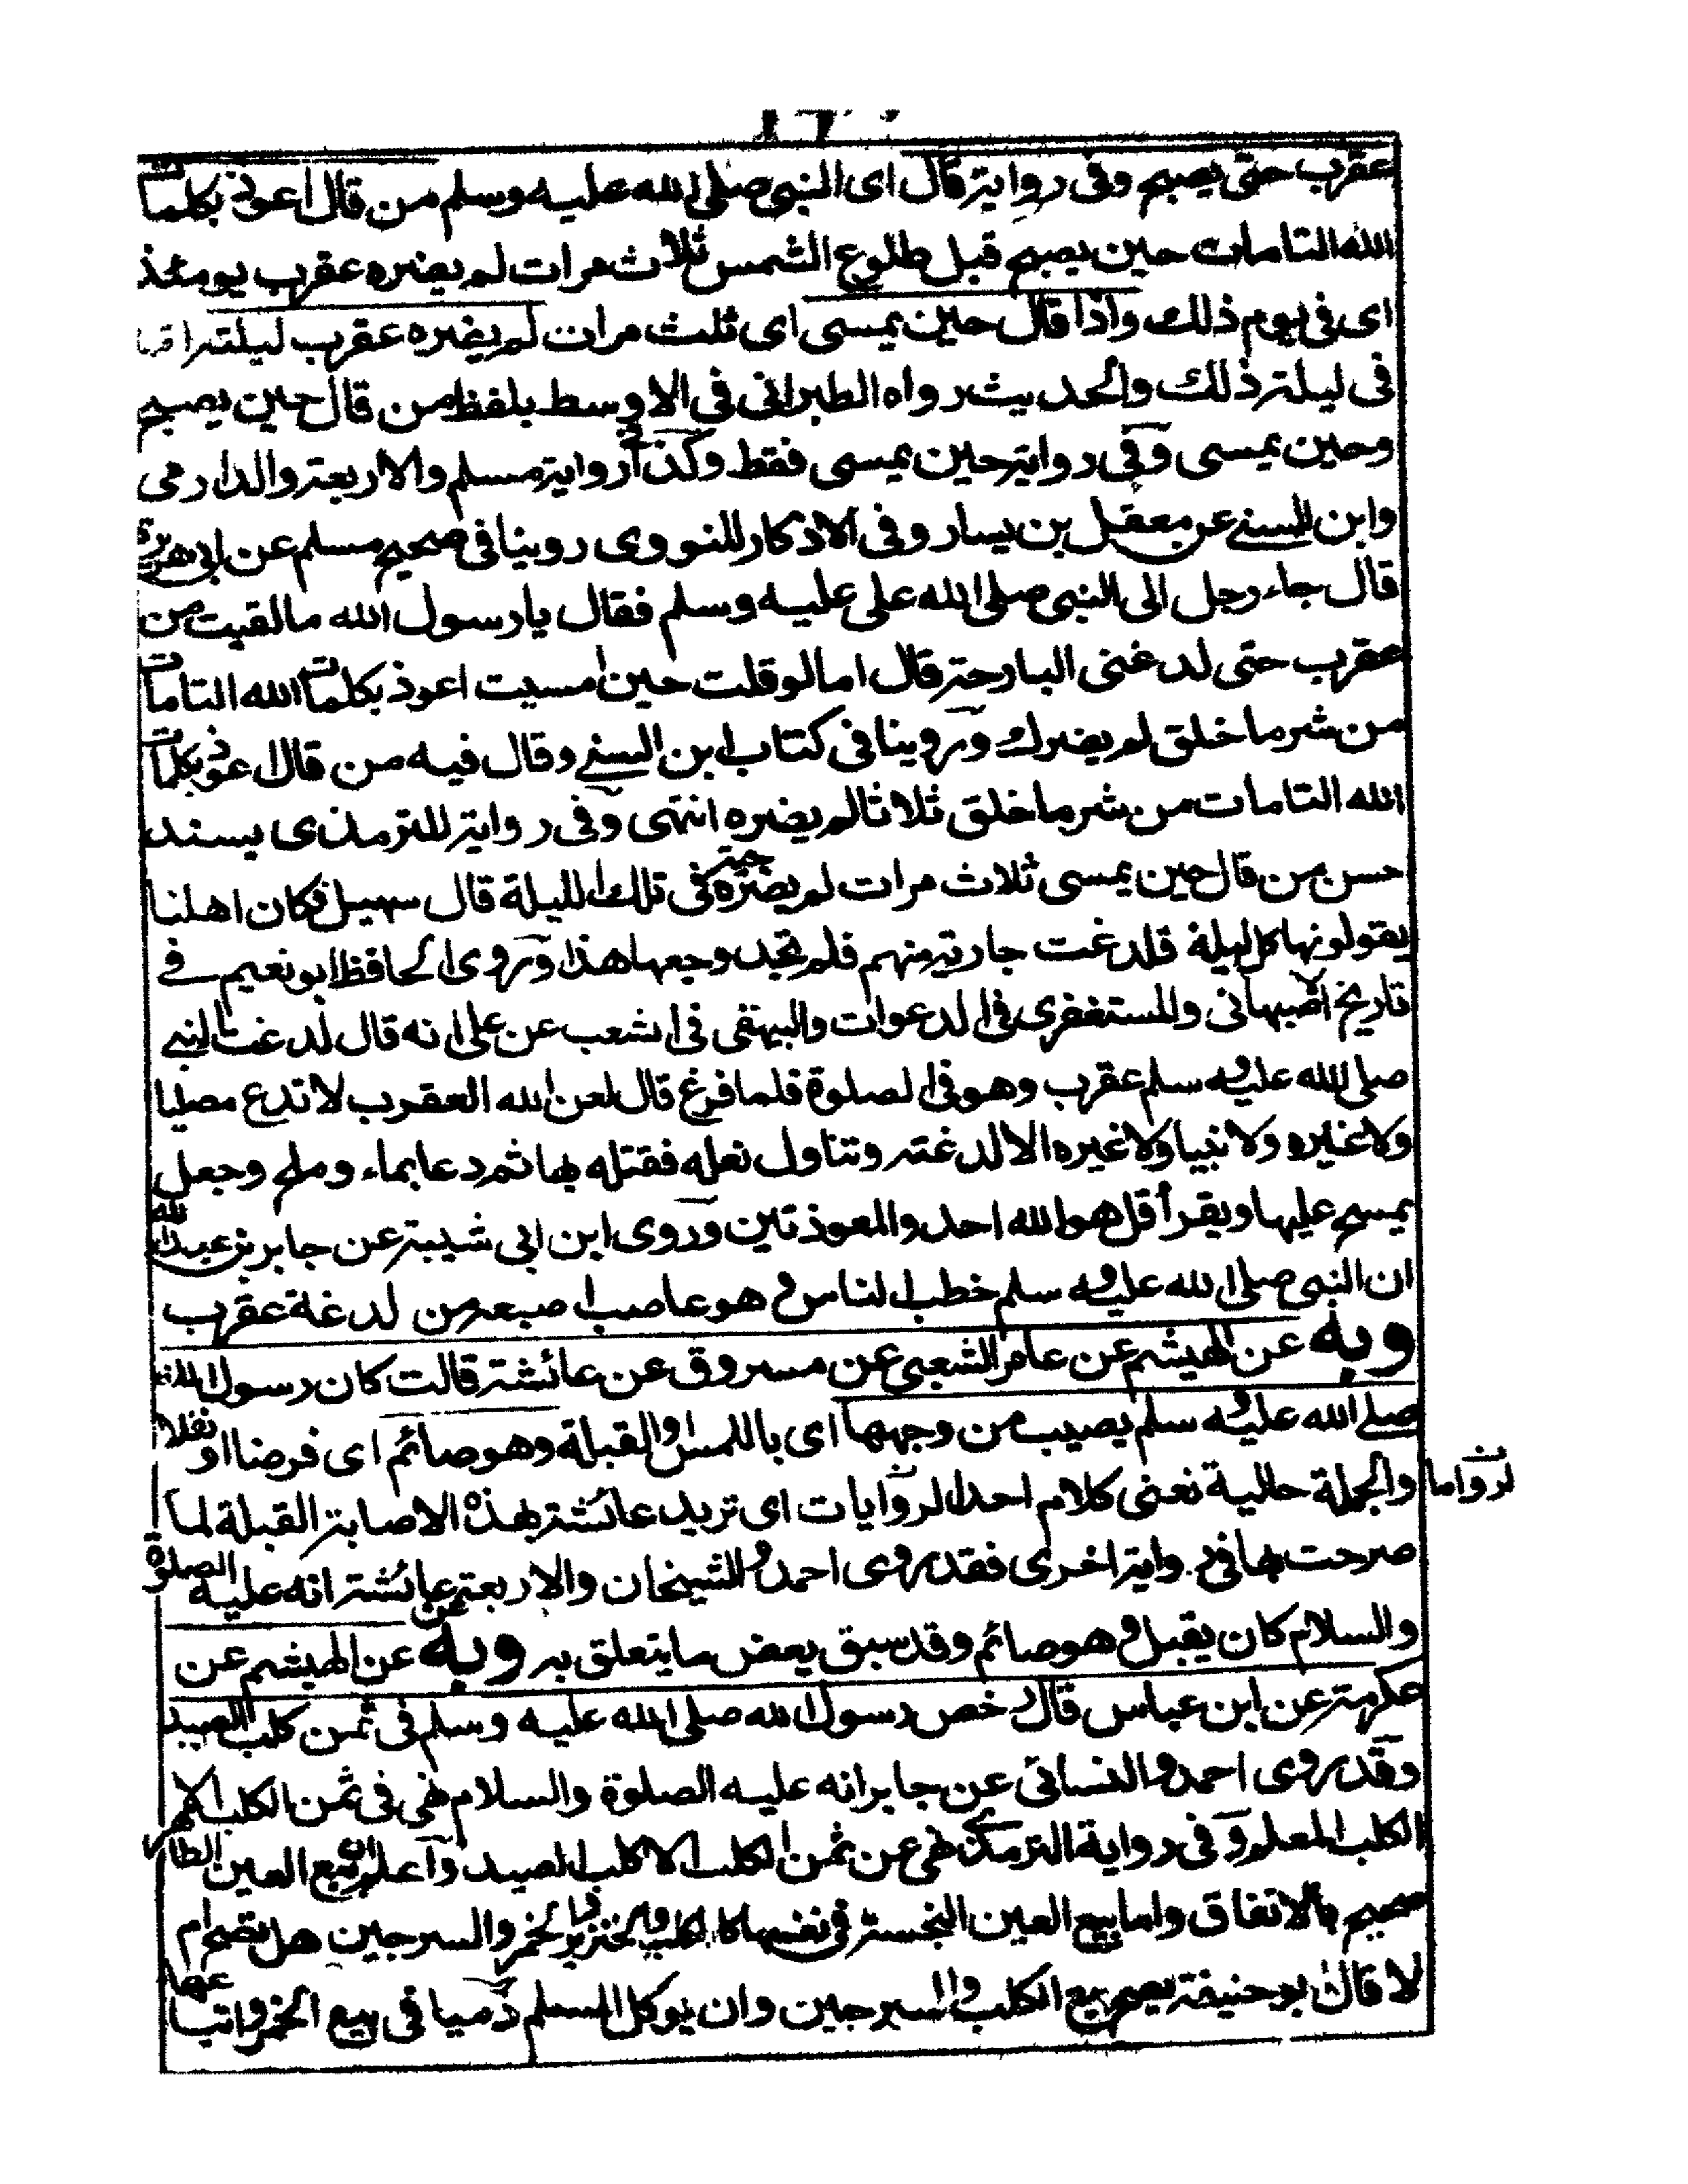 عقرب حتى يصبح وفى رواية قال اى النبى صلى الله عليه وسلم من قال اعوذ بكلمات
الله التامات حين يصبح قبل طلوع الشمس ثلاث مرات لم يضره عقرب يومئذ
اى فى يوم ذلك واذا قال حين يمسى اى ثلث مرات لم يضره عقرب ليلته اى
فى ليلة ذلك والحديث رواه الطبرانى فى الاوسط بلفظ من قال حين يصبح
وحين يمسى وفى رواية حين يمسى فقط وكذا فى رواية مسلم والاربعة والدارمى
وابن السنى عن معقل بن يسار وفى الاذكار للنووى روينا فى صحيح مسلم عن ابى هريرة
قال جاء رجل الى النبى صلى الله على عليه وسلم فقال يا رسول الله ما لقيت من
عقرب حتى لدغنى البارحة قال اما لو قلت حين امسيت اعوذ بكلمات الله التامات
من شر ما خلق لم يضرك وروينا فى كتاب ابن السنى وقال فيه من قال اعوذ بكلمات
الله التامات من شر ما خلق ثلاثا لم يضره انتهى وفى رواية للترمذى بسند
حسن من قال حين يمسى ثلاث مرات لم يضره حمة فى تلك الليلة قال سهيل فكان اهلنا
يقولونها كل ليلة فلدغت جارية منهم فلم تجد وجعها هذا وروى الحافظ ابو نعيم فى
تاريخ الاصبهانى والمستغفرى فى الدعوات والبيهقى فى الشعب عن على انه قال لدغت النبى
صلى الله عليه وسلم عقرب وهو فى الصلوة فلما فرغ قال لعن الله العقرب لا تدع مصليا
ولا غيره ولا نبيا ولا غيره الا لدغته وتناول نعله فقتله بها ثم دعا بماء وملح وجعل
يمسح عليها ويقرأ قل هو الله احد والمعوذتين وروى ابن ابى شيبة عن جابر بن عبد الله
ان النبى صلى الله عليه وسلم خطب الناس وهو عاصب اصبعه من لدغة عقرب
وبه عن الهيثم عن عامر الشعبى عن مسروق عن عائشة قالت كان رسول الله
صلى الله عليه وسلم يصيب من وجهها اى باللمس والقبلة وهو صائم اى فرضا او نفلا
والجملة حالية نعنى كلام احد الروايات اى تريد عائشة بهذه الاصابة القبلة لما
صرحت بها فى رواية اخرى فقد روى احمد والشيخان والاربعة عن عائشة انه عليه الصلوة
والسلام كان يقبل وهو صائم وقد سبق بعض ما يتعلق به وبه عن الهيثم عن
عكرمة عن ابن عباس قال رخص رسول الله صلى الله عليه وسلم فى ثمن كلب الصيد
وقد روى احمد والنسائى عن جابر انه عليه الصلوة والسلام نهى فى ثمن الكلب الا
الكلب المعلم وفى رواية الترمذى نهى عن ثمن الكلب الا كلب الصيد واعلم ان بيع العين الطاهر
صحيح بالاتفاق واما بيع العين النجسة فى نفسها كالكلب والخنزير والخمر والسرجين هل يصح ام
لا قال ابو حنيفة يصح بيع الكلب والسرجين وان يوكل المسلم ذميا فى بيع الخمر